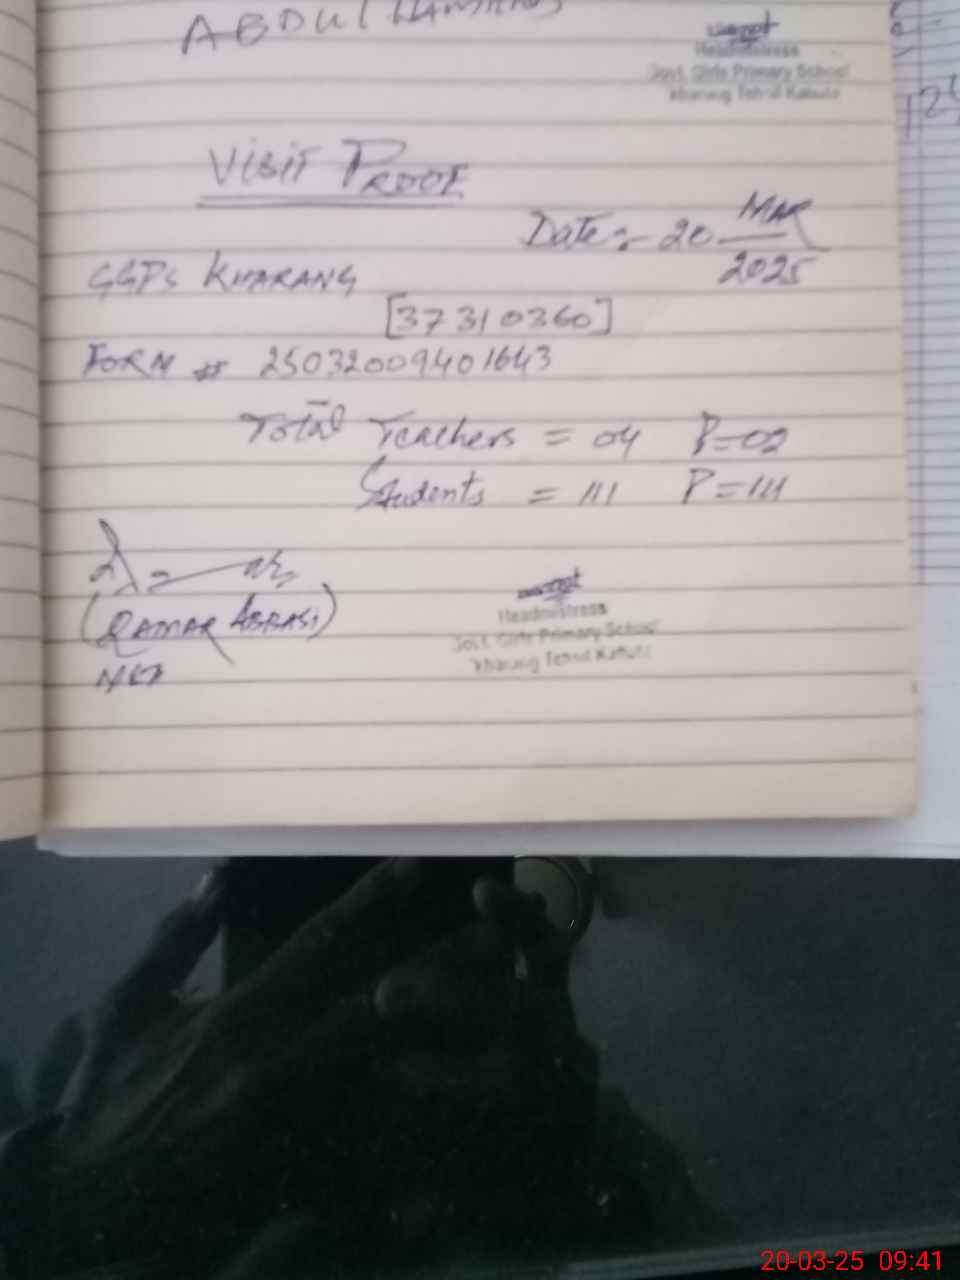 ABDUL
Headmistress
Govt. Girls Primary School
Kharang Tehsil Kahuta
Visit PROOF
Date:- 20 MAR
2025
GGPS KHARANG
[37310360]
FORM # 25032009401643
Total Teachers = 04 P=02
Students = 111 P=111
(QAMAR ABBASI)
Headmistress
Govt. Girls Primary School
Kharang Tehsil Kahuta
20-03-25 09:41